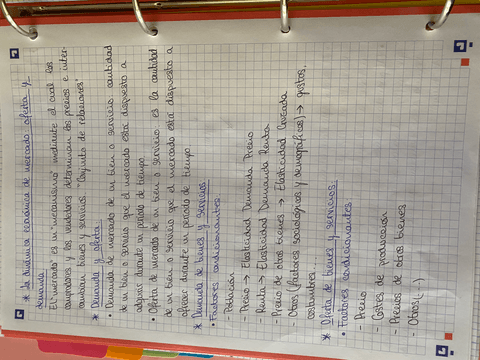 * La dinámica económica de mercado oferta y
demanda
El "mercado es un "mecanismo" mediante el cual los
compradores y los vendedores determinan los precios e inter-
cambian bienes y servicios "Conjunto de relaciones"
* Demanda y oferta
• Demanda de mercado de un bien o servicio cantidad
de un bien o servicio que el mercado está dispuesto a
adquirir durante un periodo de tiempo
• Oferta de mercado de un bien o servicio es la cantidad
de un bien o servicio que el mercado está dispuesto a
ofrecer durante un periodo de tiempo
* Demanda de bienes y servicios
• Factores condicionantes
- Población
- Precio → Elasticidad Demanda Precio
- Renta → Elasticidad Demanda Renta
- Precio de otros bienes → Elasticidad Cruzada
- Otros (factores sociológicos y demográficos) → gustos,
costumbres
* Oferta de bienes y servicios
• Factores condicionantes
- Precio
- Costes de producción
- Precios de otros bienes
- Otros (...)